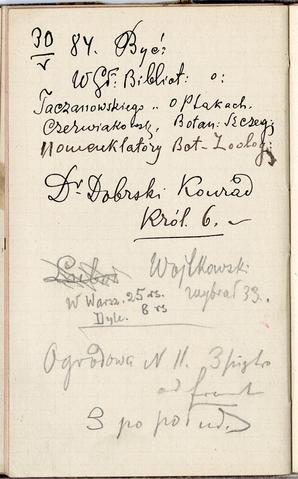 30/V 84. Być:
W Gł: Bibliot: o:
Taczanowskiego .. o Ptakach.
Czerwiakowsk, Botan: Szczeg:
Nomenklatory Bot-Zoolog:
Dr Dobrski Konrad
Król. 6.
Wojtkowski
W Warsz. 25 rs. wybrał 33.
Dyle. 8 rs
Ogrodowa N 11. 3 piętro
od frontu
3 po poł ud.